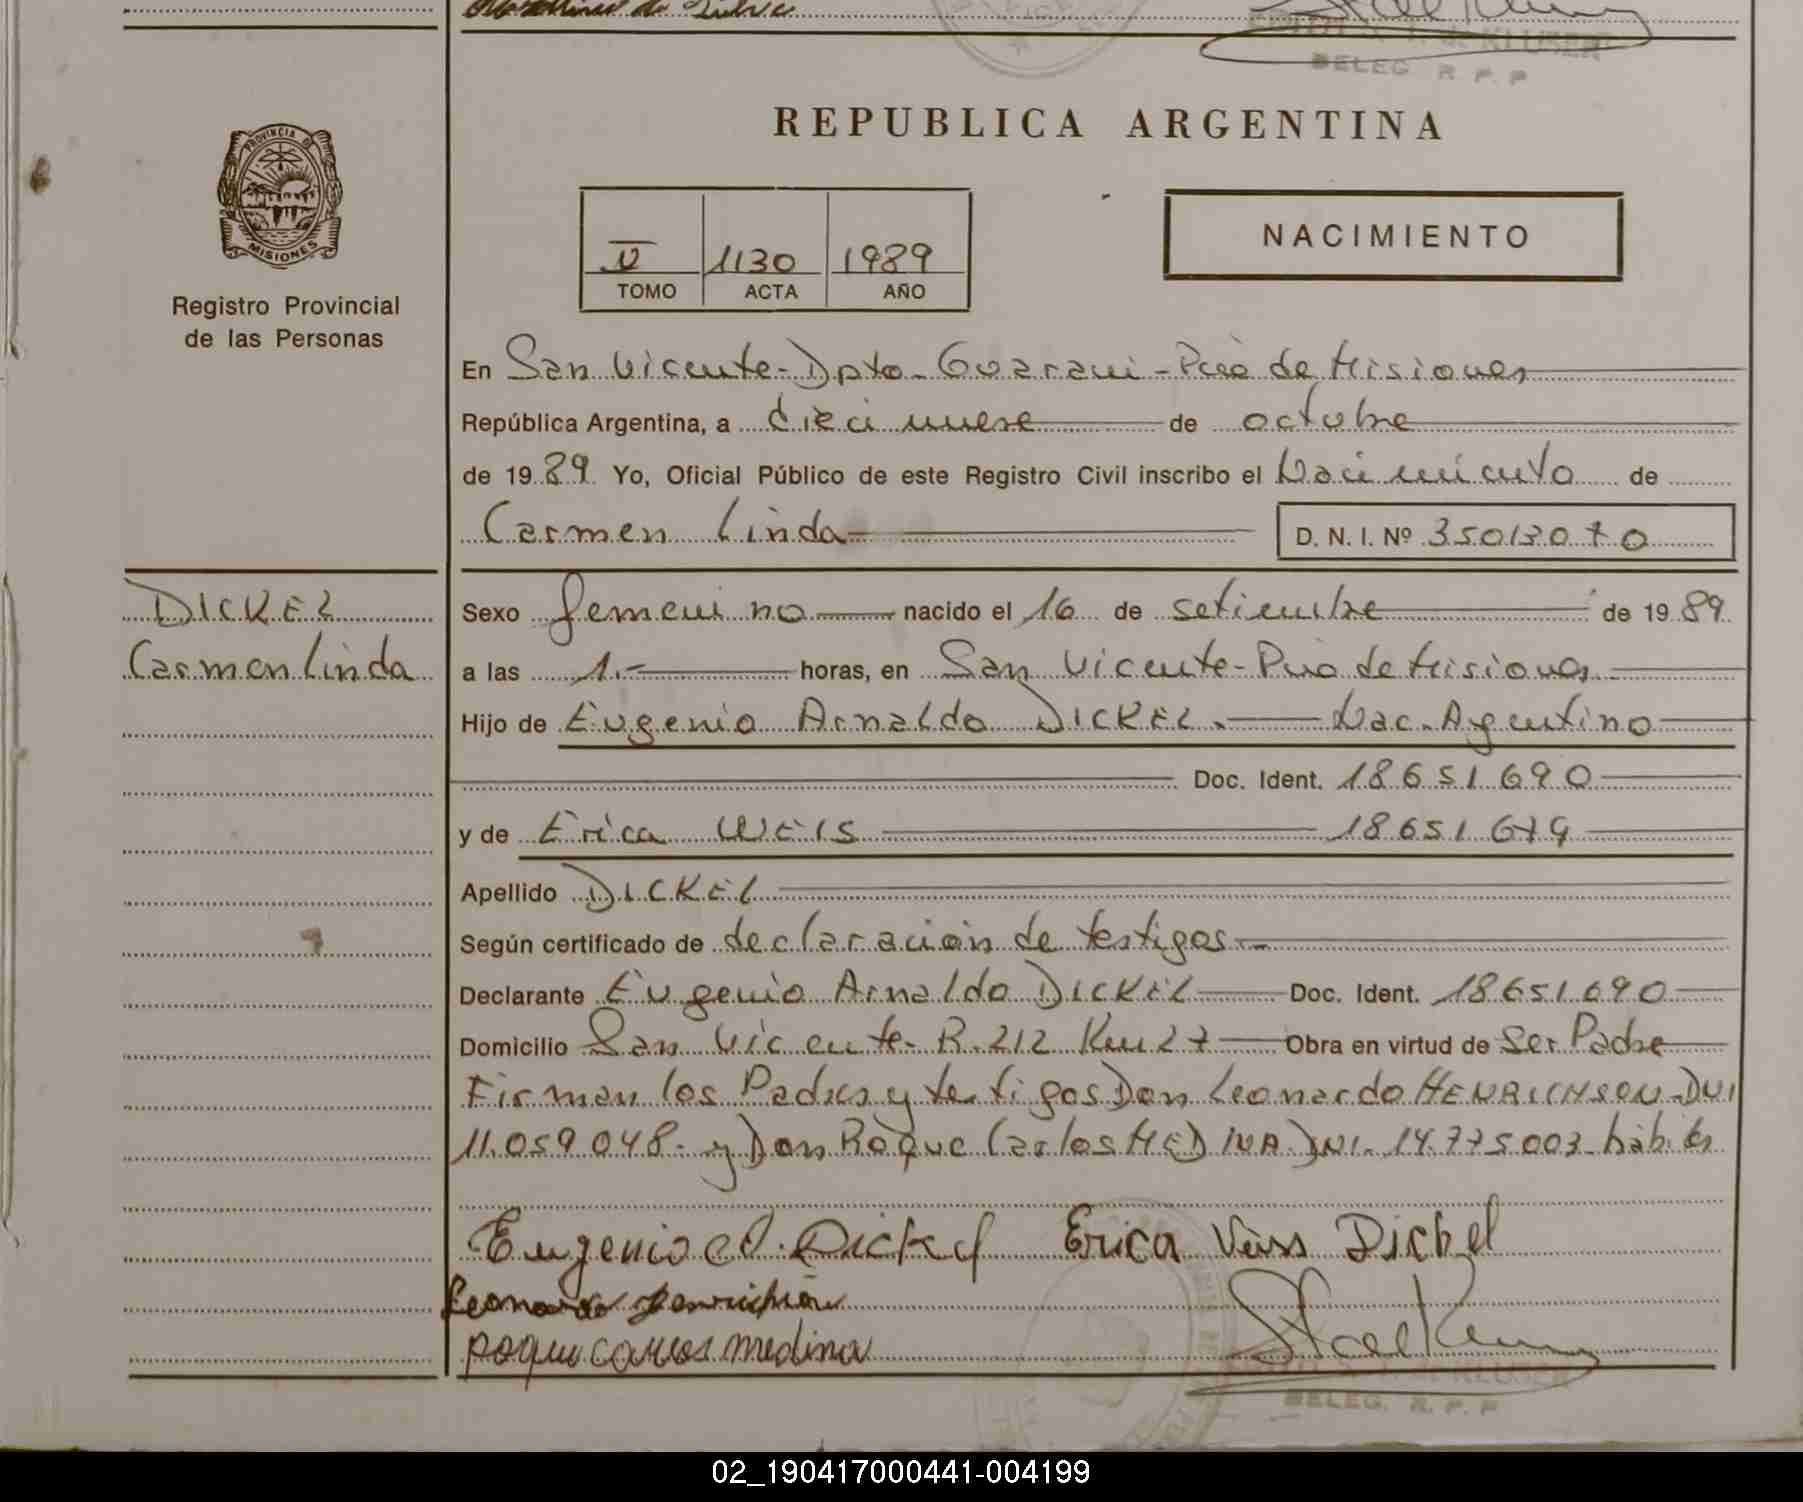 KLUSER
DELEG. R. P. P
REPUBLICA ARGENTINA
PROVINCIA DE
MISIONES
Registro Provincial
de las Personas
NACIMIENTO
V 1130 1989
TOMO ACTA AÑO
En San Vicente - Dpto - Guarani - Pcia de Misiones
República Argentina, a diecinueve de octubre
de 1989 Yo, Oficial Público de este Registro Civil inscribo el Nacimiento de
Carmen Linda D. N. I. Nº 35013070
DICKEL
Carmen Linda
Sexo femenino nacido el 16 de setiembre de 1989
a las 1.- horas, en San Vicente - Pcia de Misiones
Hijo de Eugenio Arnaldo DICKEL.- Nac. Argentino
Doc. Ident. 18651690
y de Erica WEIS 18651679
Apellido DICKEL
Según certificado de declaración de testigos.-
Declarante Eugenio Arnaldo DICKEL Doc. Ident. 18651690
Domicilio San Vicente - R. 212 Km 27 Obra en virtud de Ser Padre
Firman los Padres y testigos Don Leonardo HENRICHSEN DNI
11.059.048 - y Don Roque Carlos MEDINA. DNI. 14.775003 - hábiles
Eugenio A. Dickel Erica Veiss Dickel
Leonardo Henrichsen
Roque Carlos medina
KLUSER
DELEG. R. P. P
02_190417000441-004199